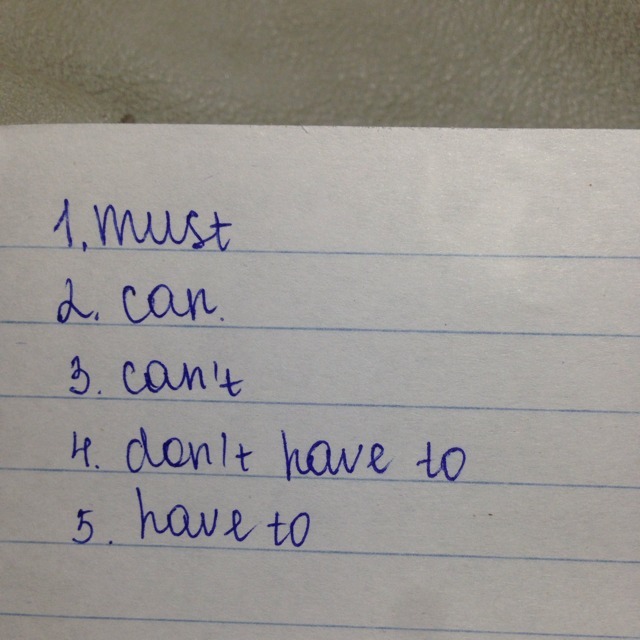 1. must
2. can.
3. can't
4. don't have to
5. have to